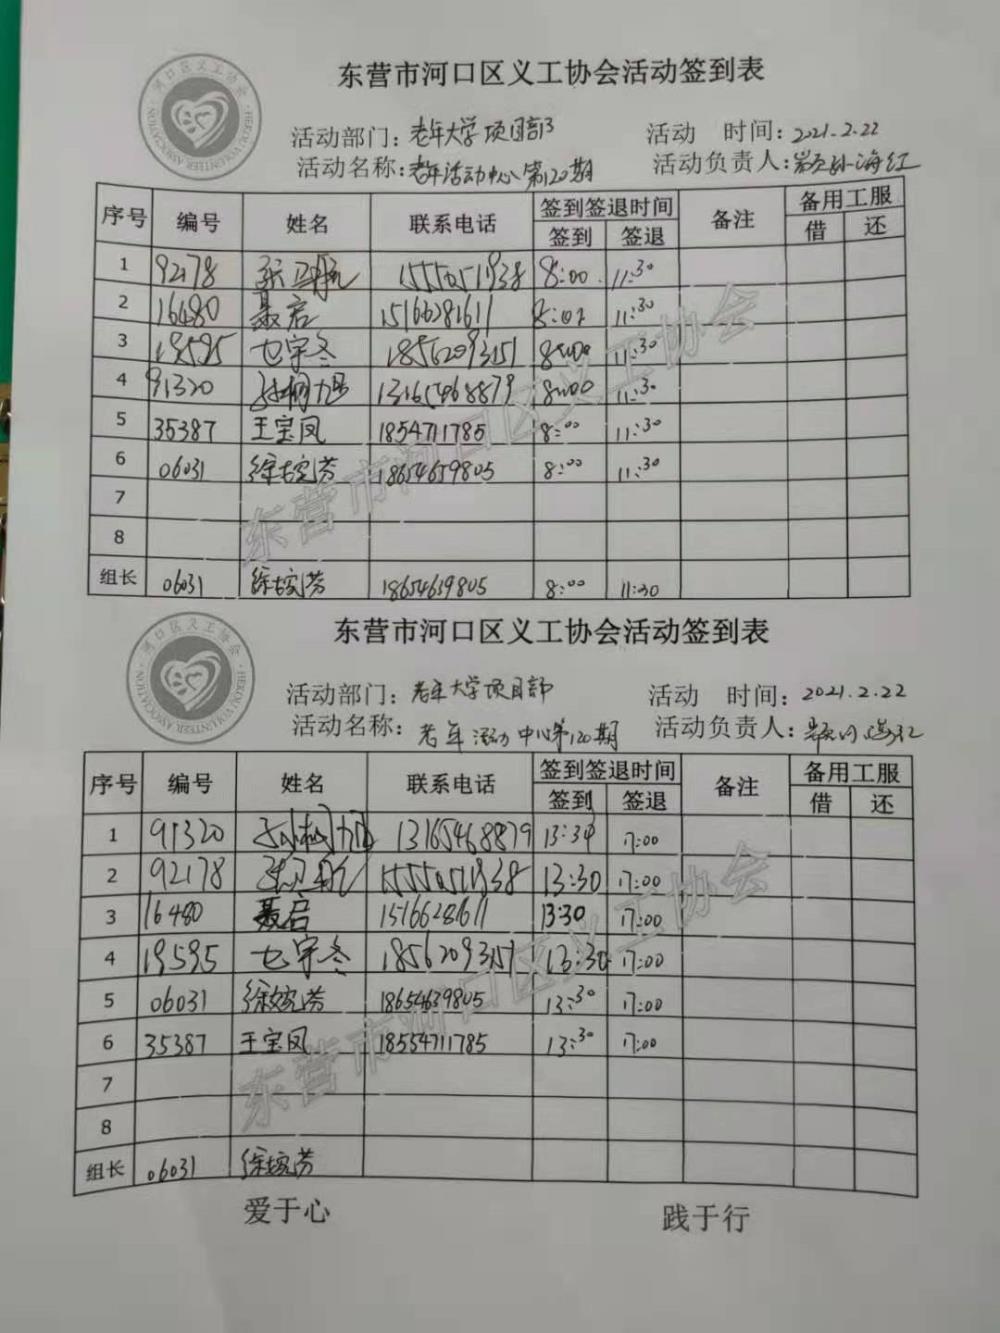 东营市河口区义工协会活动签到表
活动部门：老年大学项目部 活动 时间：2021.2.22
活动名称：老年活动中心第120期 活动负责人：海红
序号 编号 姓名 联系电话 签到签退时间 备注 备用工服
签到 签退 借 还
1 92178 1555051938 8:00 11:30
2 16480 聂启 15166281611 8:00 11:30
3 19595 七宇冬 18562093151 8:00 11:30
4 91320 13165468879 8:00 11:30
5 35387 王宝凤 1854711785 8:00 11:30
6 06031 徐婉芳 18654659805 8:00 11:30
7
8
组长 06031 徐婉芳 18654639805 8:00 11:30
东营市河口区义工协会
东营市河口区义工协会活动签到表
活动部门：老年大学项目部 活动 时间：2021.2.22
活动名称：老年活动中心第120期 活动负责人：
序号 编号 姓名 联系电话 签到签退时间 备注 备用工服
签到 签退 借 还
1 91320 13165468879 13:30 17:00
2 92178 1555051938 13:30 17:00
3 16480 聂启 15166281611 13:30 17:00
4 19595 七宇冬 18562093151 13:30 17:00
5 06031 徐婉芳 18654639805 13:30 17:00
6 35387 王宝凤 18554711785 13:30 17:00
7
8
组长 06031 徐婉芳
东营市河口区义工协会
爱于心 践于行